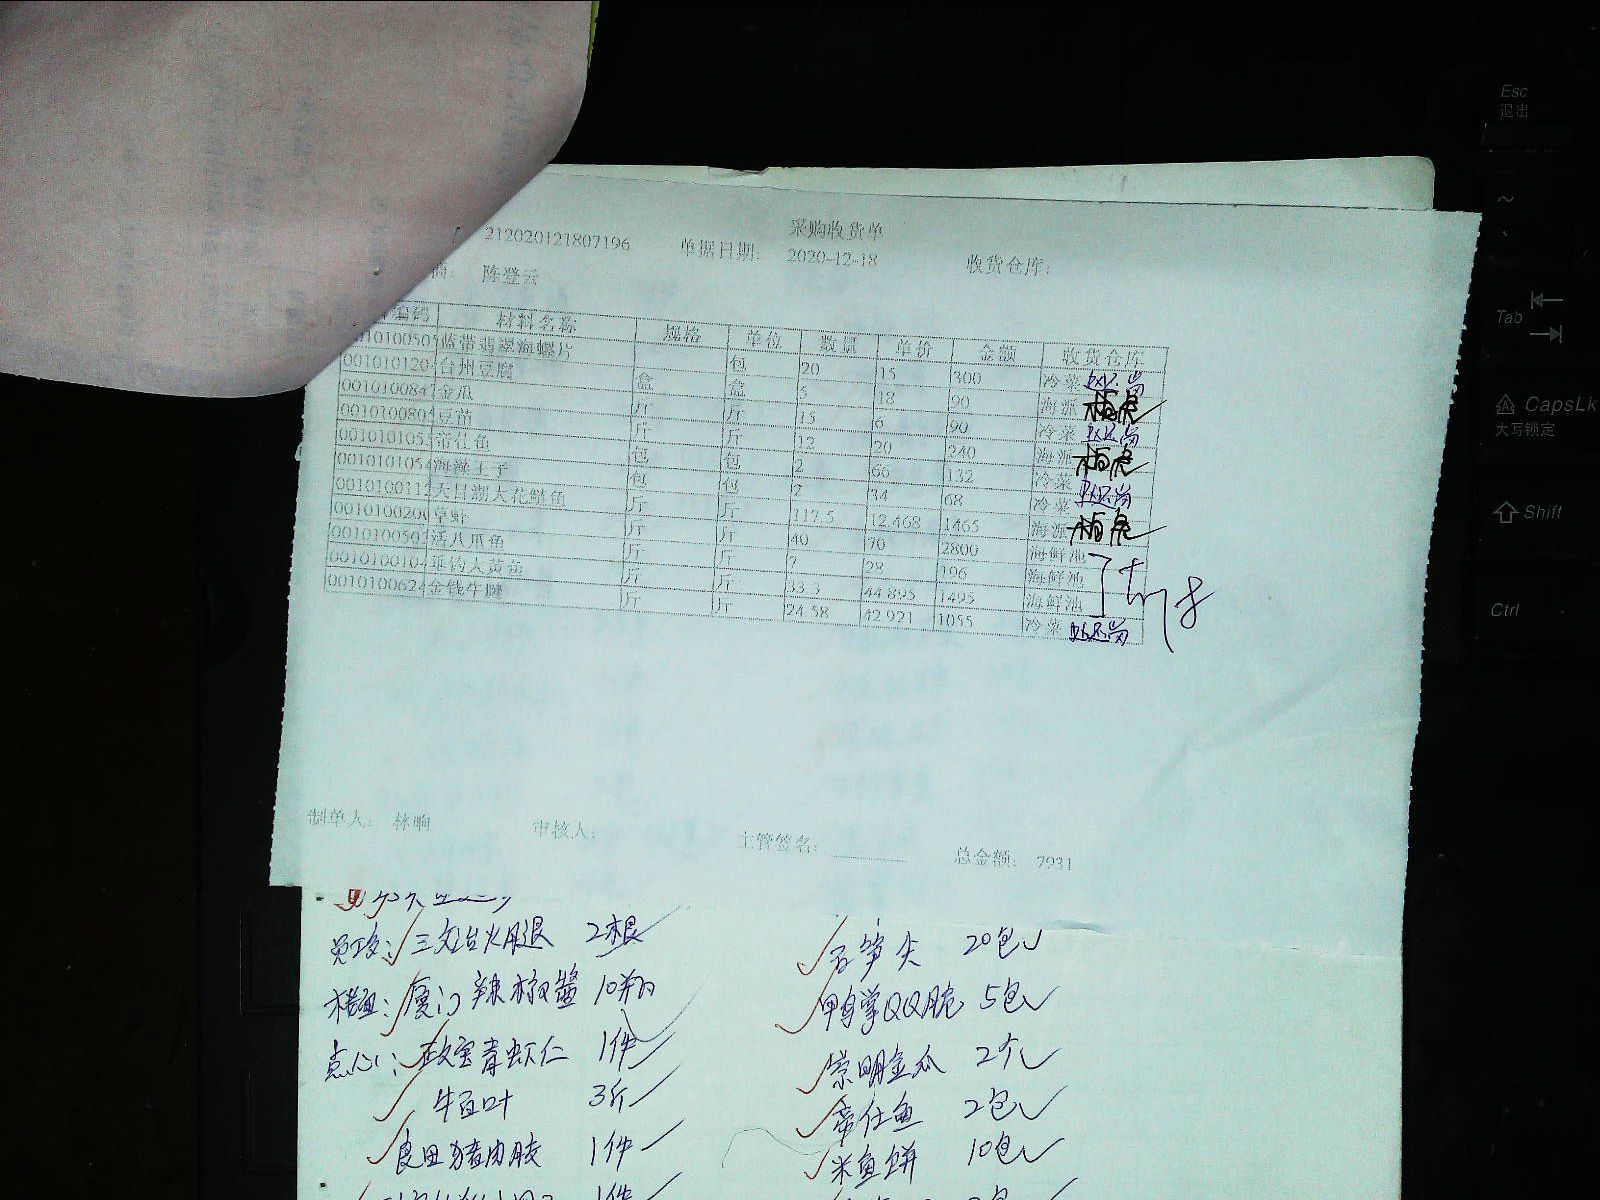 采购收货单
212020121807196 单据日期: 2020-12-18 收货仓库:
商: 陈登云
编码 材料名称 规格 单位 数量 单价 金额 收货仓库
010100505 蓝带翡翠海螺片 包 20 15 300 冷菜
001010120 台州豆腐 盒 盒 5 18 90 海派
0010100847 金瓜 斤 斤 15 6 90 冷菜
0010100805 豆苗 斤 斤 12 20 240 海派
001010105 帝仕鱼 包 包 2 66 132 冷菜
001010105 海洋王子 包 包 2 34 68 冷菜
001010011 天目湖大花鲢鱼 斤 斤 117.5 12.468 1465 海派
001010020 草虾 斤 斤 40 70 2800 海鲜池
001010050 活八爪鱼 斤 斤 7 28 196 海鲜池
001010010 垂钓大黄鱼 斤 斤 33.3 44.895 1495 海鲜池
0010100624 金钱牛腱 斤 斤 24.58 42.921 1055 冷菜
制单人: 林晌 审核人: 主管签名: 总金额: 7931
员工: 三文治火腿 2根
厦门辣椒酱 10瓶
点心: 青虾仁 1件
牛百叶 3斤
良田猪肉 1件
石笋尖 20包
鸭掌QQ脆 5包
崇明金瓜 2个
帝仕鱼 2包
米鱼饼 10包
Esc
退出
Tab
CapsLk
大写锁定
Shift
Ctrl